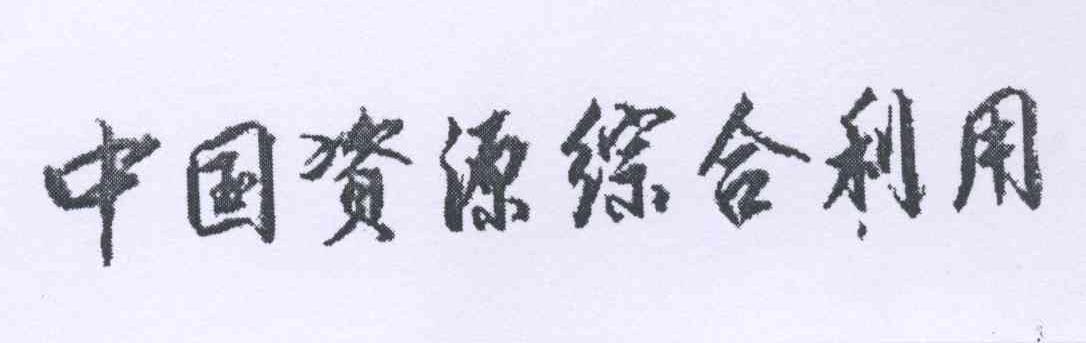 中国资源综合利用